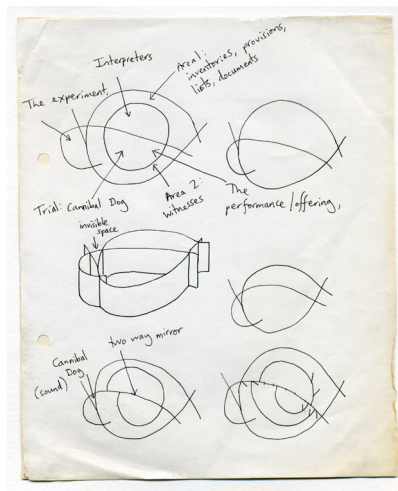 Interpreters
Area 1:
inventories, provisions,
lists, documents
The experiment,
Trial: Cannibal Dog
Area 2:
witnesses
The
performance/offering,
invisible
space
two way mirror
Cannibal
Dog
(sound)